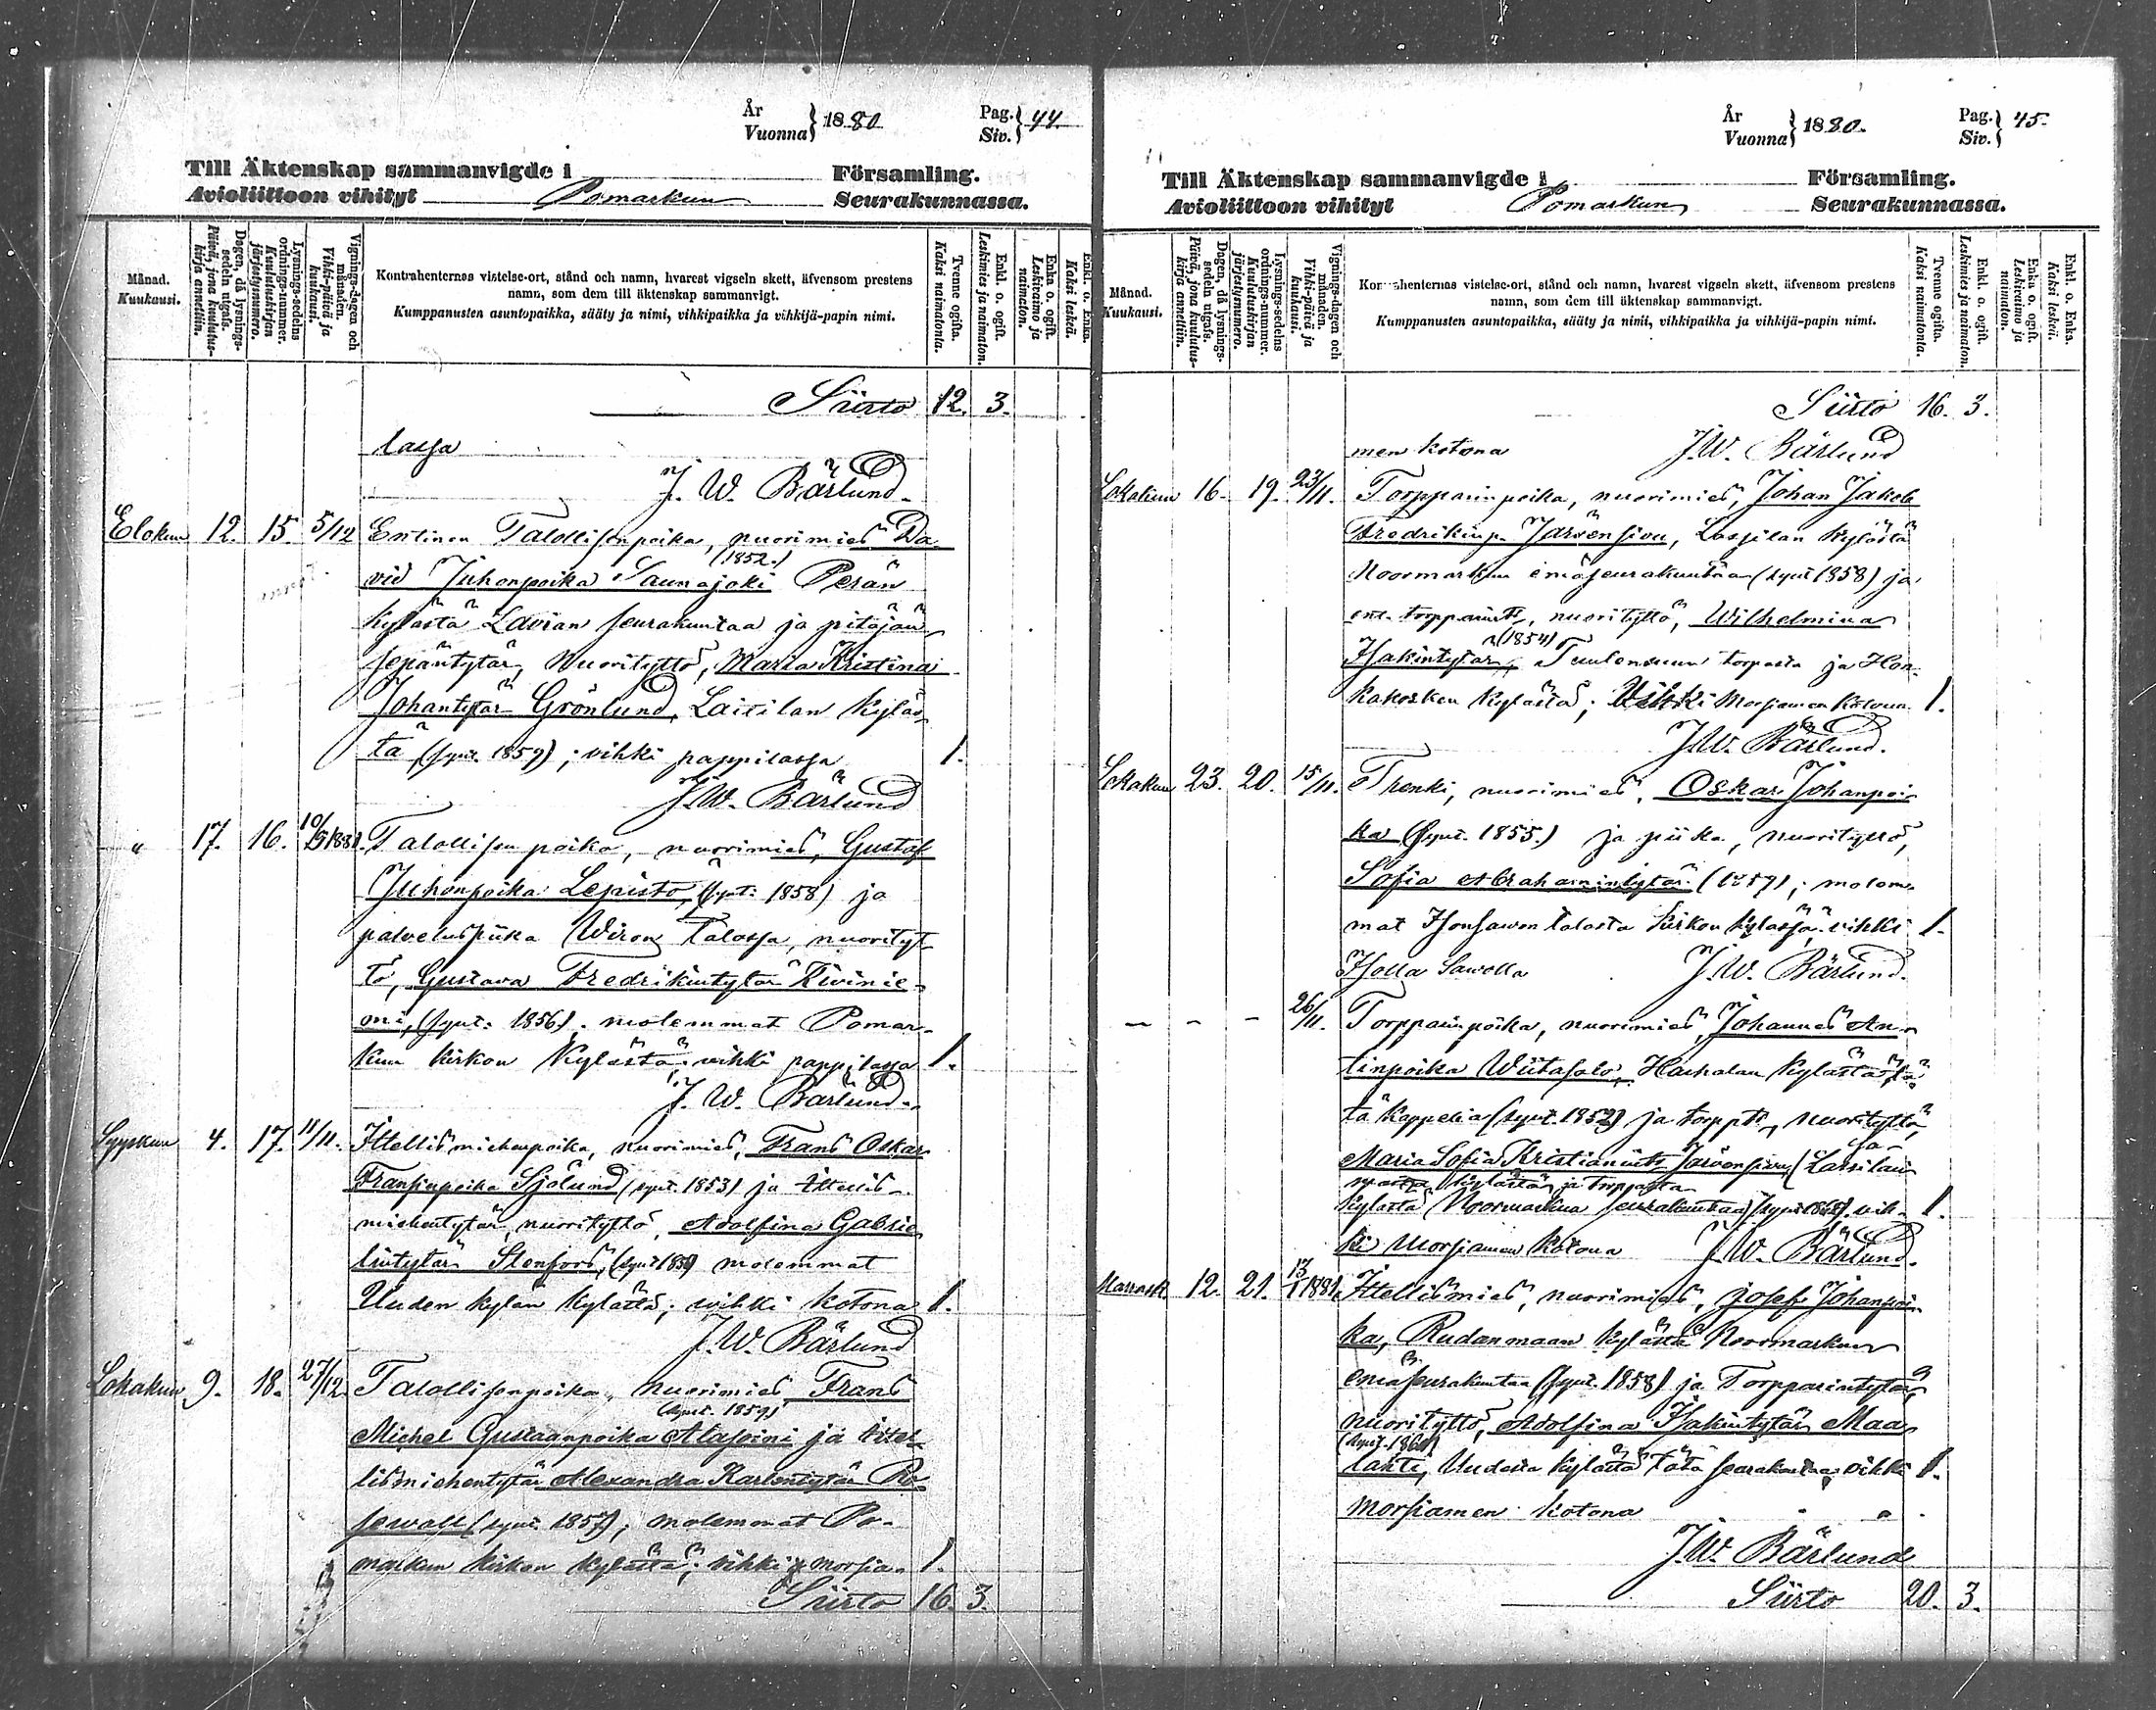 År
Vuonna } 1880
Pag.
Siv. } 44
Till Äktenskap sammanvigde i Församling.
Avioliittoon vihityt Pomarkun Seurakunnassa.
Månad. Kuukausi.
Dagen, då lysnings-sedeln utgafs. Päivä, jona kuulutus-kirja annettiin.
Lysnings-sedelns ordnings-nummer. Kuulutuskirjan järjestysnumero.
Vignings-dagen och månaden. Vihki-päivä ja kuukausi.
Kontrahenternas vistelse-ort, stånd och namn, hvarest vigseln skett, äfvensom prestens
namn, som dem till äktenskap sammanvigt.
Kumppanusten asuntopaikka, sääty ja nimi, vihkipaikka ja vihkijä-papin nimi.
Tvenne ogifta. Kaksi naimatonta.
Enkl. o. ogift. Leskimies ja naimaton.
Enka o. ogift. Leskivaimo ja naimaton.
Enkl. o. Enka. Kaksi leskeä.
Siirto 12. 3.
lassa
J. W. Bärlund
Elokuu 12. 15. 5/12 Entinen Talollisenpoika, nuorimies Da-
(1852.)
vid Juhonpoika Saunajoki Perän
kylästä Lavian seurakuntaa ja pitäjän
sepäntytär, Nuorityttö, Maria Kristina
Johantytär Grönlund, Laisilan kyläs-
tä (synt. 1859); vihki pappilassa 1.
J. W. Bärlund
" 17. 16. 10/5 1881. Talollisen poika, nuorimies, Gustaf
Juhonpoika Lepistö, (synt: 1858) ja
palveluspiika Wiron talossa, nuorityt
tö, Gustava Fredrikintytär Kivinie-
mi, (synt: 1856), molemmat Pomar-
kun kirkon kylästä; vihki pappilassa 1.
J. W. Bärlund
Syyskuu 4. 17. 11/11. Ittellismiehenpoika, nuorimies, Frans Oskar
Fransinpoika Sjölund (synt. 1853) ja ittellis-
miehentytär, nuorityttö, Adolfina Gabrie
lintytär Stenfors, molemmat
Uuden kylän kylästä; vihki kotona 1.
J. W. Bärlund
Lokakuu 9. 18. 27/12 Talollisenpoika, nuorimies Frans
(synt. 1859)
Michel Gustaanpoika Alasoini ja ittel-
lismiehentytär Alexandra Karlentytär Ro-
sewall (synt. 1857); molemmat Po-
markun kirkon kylästä; vihki morsia- 1.
Siirto 16. 3.
År
Vuonna } 1880.
Pag.
Siv. } 45.
Till Äktenskap sammanvigde i Församling.
Avioliittoon vihityt Pomarkun Seurakunnassa.
Månad. Kuukausi.
Dagen, då lysnings-sedeln utgafs. Päivä, jona kuulutus-kirja annettiin.
Lysnings-sedelns ordnings-nummer. Kuulutuskirjan järjestysnumero.
Vignings-dagen och månaden. Vihki-päivä ja kuukausi.
Kontrahenternas vistelse-ort, stånd och namn, hvarest vigseln skett, äfvensom prestens
namn, som dem till äktenskap sammanvigt.
Kumppanusten asuntopaikka, sääty ja nimi, vihkipaikka ja vihkijä-papin nimi.
Tvenne ogifta. Kaksi naimatonta.
Enkl. o. ogift. Leskimies ja naimaton.
Enka o. ogift. Leskivaimo ja naimaton.
Enkl. o. Enka. Kaksi leskeä.
Siirto 16. 3.
men kotona J. W. Bärlund
Lokakuu 16. 19. 23/11. Torpparinpoika, nuorimies, Johan Jakob
Fredrikinp. Järvensivu, Lassilan kylästä
Noormarkun emäseurakuntaa (synt 1858) ja
ent. torpparints, nuorityttö, Wilhelmina
(1854)
Isakintytär, Tuulensuun torpasta ja Hon-
kakosken kylästä; Vihki morsiamen kotona 1.
J. W. Bärlund.
Lokakuu 23. 20. 15/11. Trenki, nuorimies, Oskar Johanpoi-
ka (synt. 1855.) ja piika, nuorityttö,
Sofia Abrahamintytär (1859); molem-
mat Isonsawon talosta kirkon kylässä; vihki 1.
Isolla Sawolla J. W. Bärlund.
- - - 26/11. Torpparinpoika, nuorimies, Johannes An-
tinpoika Wiitasalo, Harhalan kylästä, tä-
tä kappelia (synt. 1852) ja torppts, nuorityttö,
Maria Sofia Kristianints Järvensivu, Lassilan
kylästä ja torpasta
kylästä Noormarkun seurakuntaa; vih- 1.
ki morsiamen kotona J. W. Bärlund.
Marrask. 12. 21. 13/1 1881. Ittellismies, nuorimies, Josef Johanpoi-
ka, Rudanmaan kylästä Noormarkun
emäseurakuntaa (synt. 1858) ja Torpparintytär,
nuorityttö, Adolfina Isakintytär Maa-
lahti, Uudesta kylästä tätä seurakuntaa vihki 1.
morsiamen kotona
J. W. Bärlund
Siirto 20. 3.